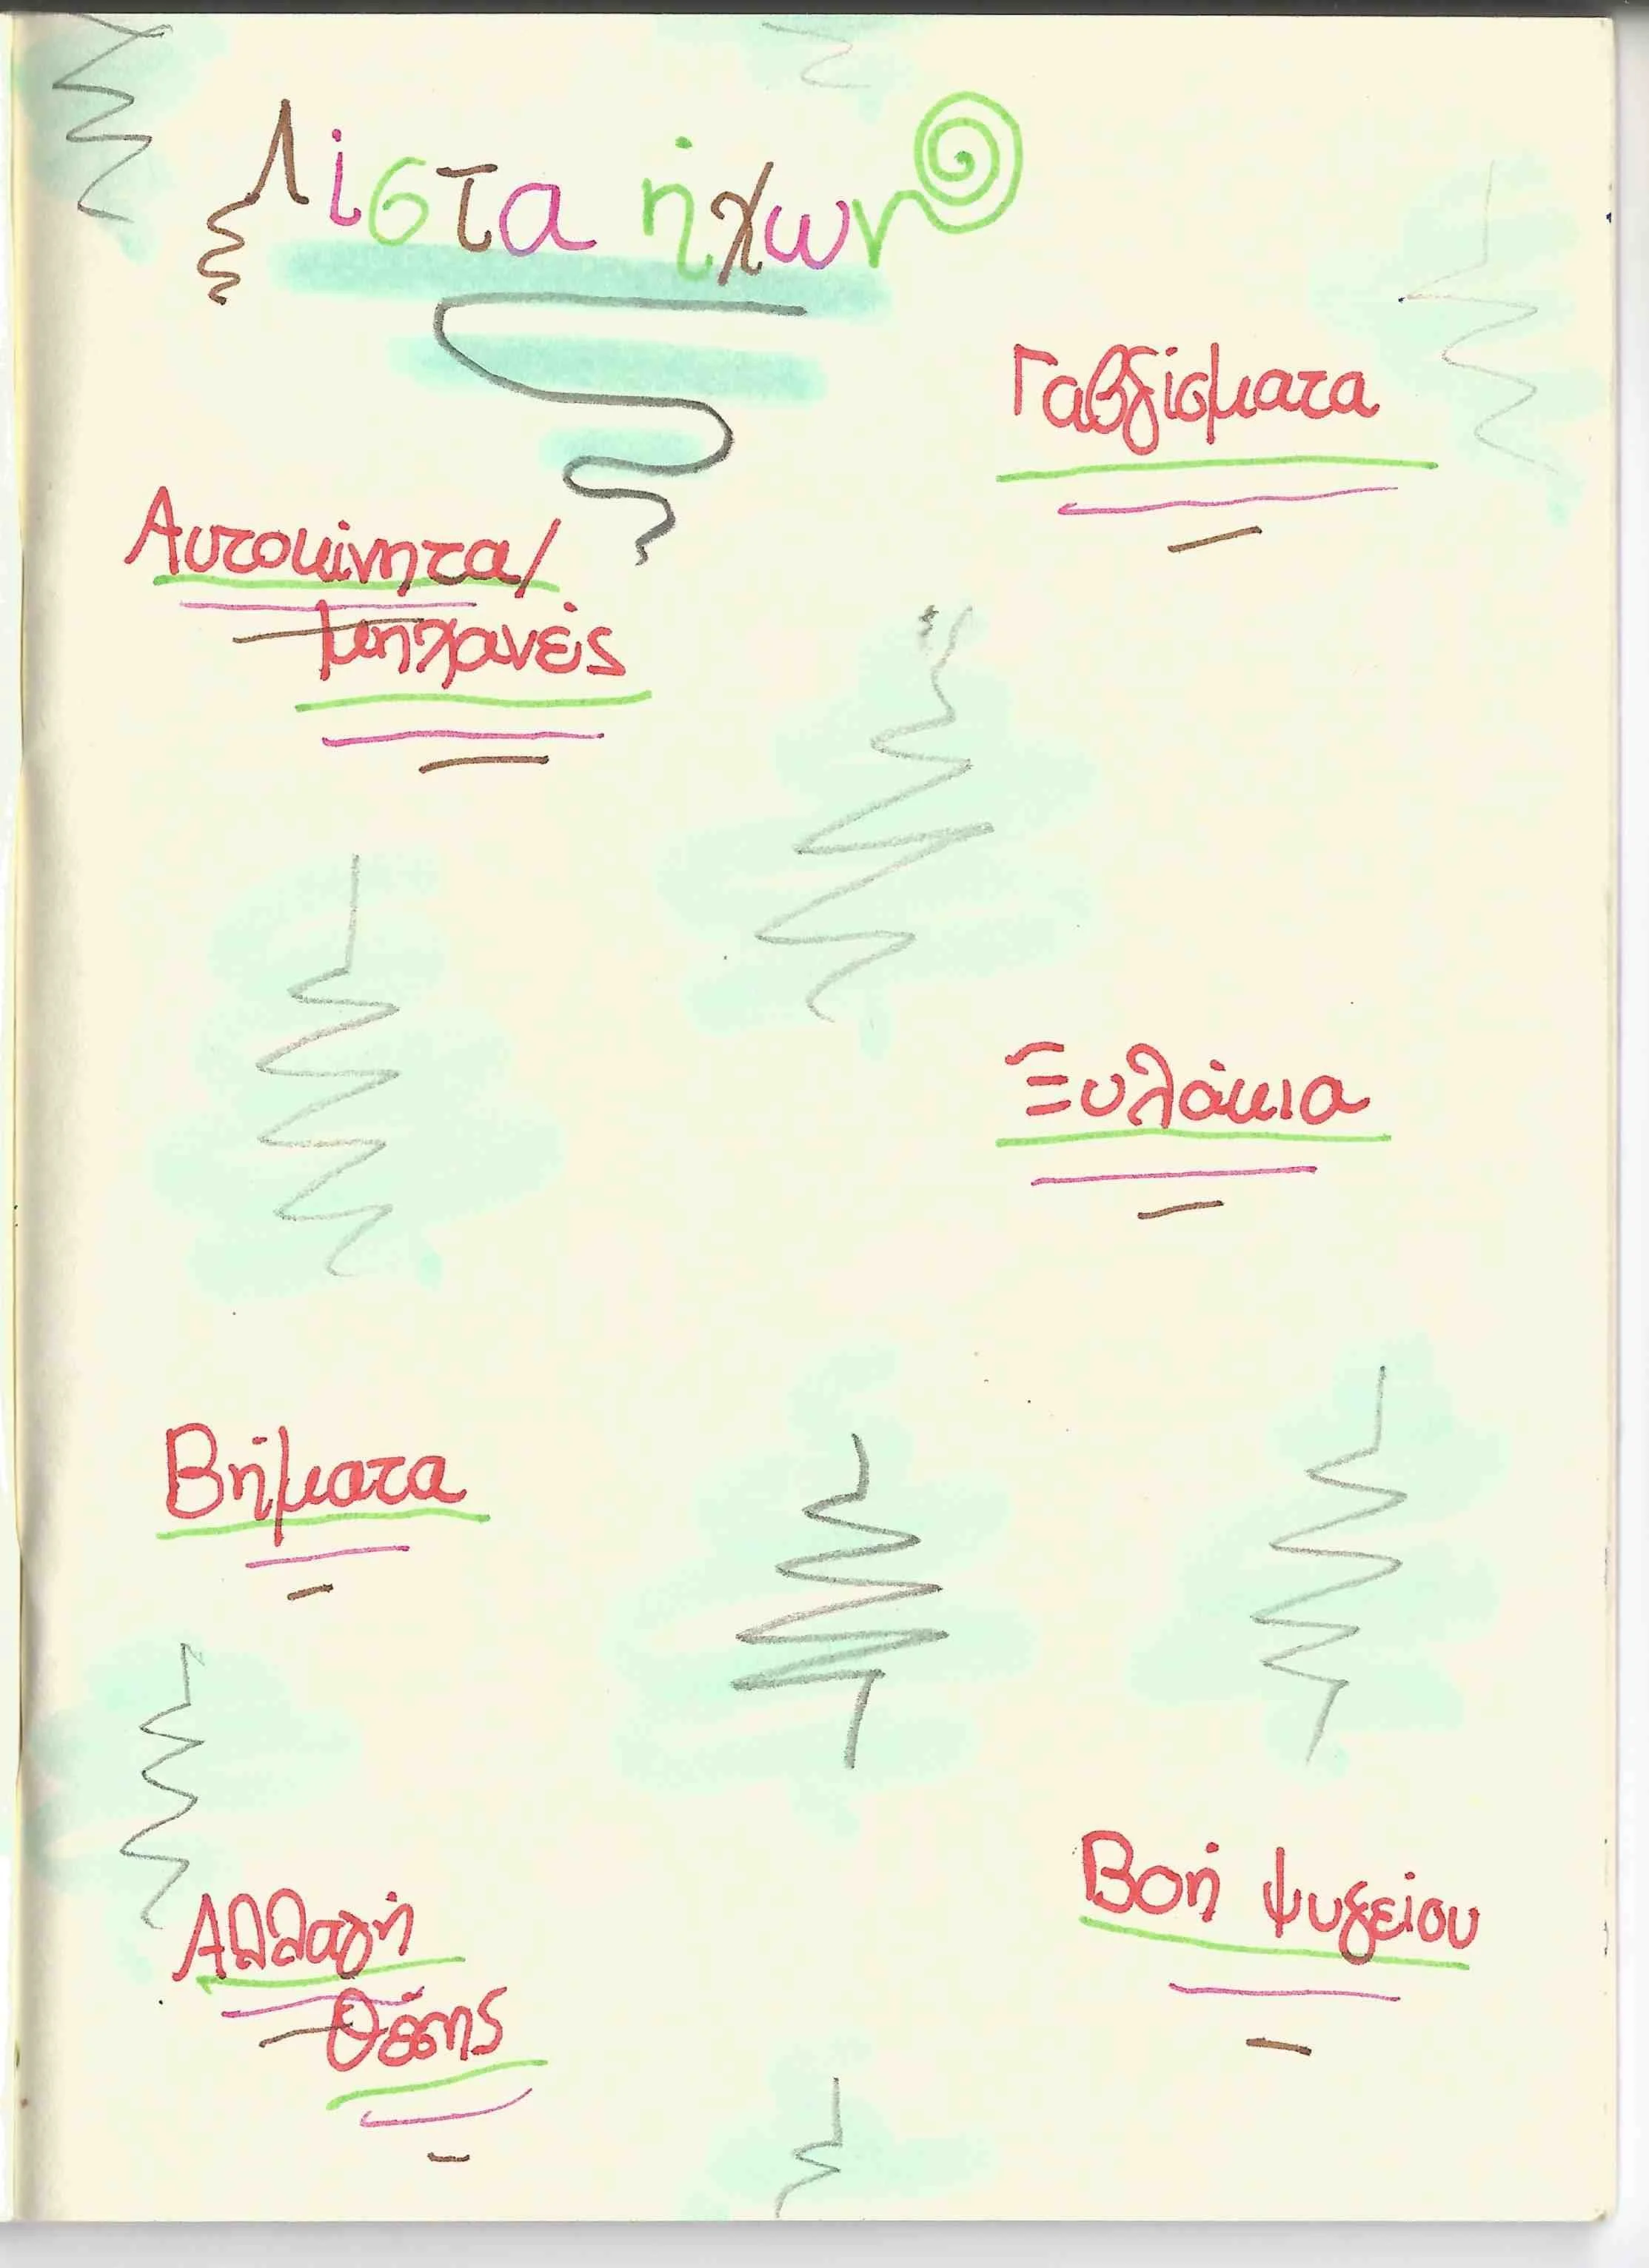 Λίστα ήχων
Γαβγίσματα
Αυτοκίνητα/
μηχανές
Ξυλάκια
Βήματα
Αλλαγή
θέσης
Βοή ψυγείου